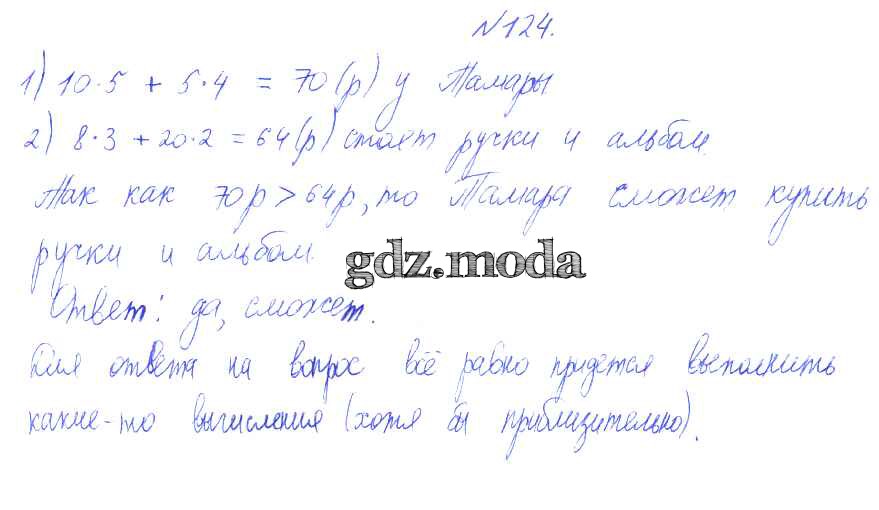 №124.
1) 10·5 + 5·4 = 70(р) у Тамары
2) 8·3 + 20·2 = 64(р) стоят ручки и альбом.
Так как 70р > 64р, то Тамара сможет купить
ручки и альбом.
gdz.moda
Ответ: да, сможет.
Для ответа на вопрос всё равно придется выполнить
какие-то вычисления (хотя бы приблизительно).